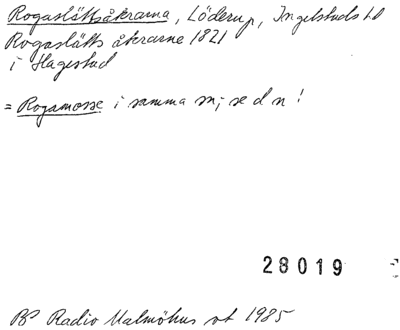 Rogaslättsåkrarna, Löderup, Ingelstads hd
Rogaslätts åkrarne 1821
i Hagestad
= Rogamosse i samma sn; se d n!
28019
PP Radio Malmöhus vt 1985